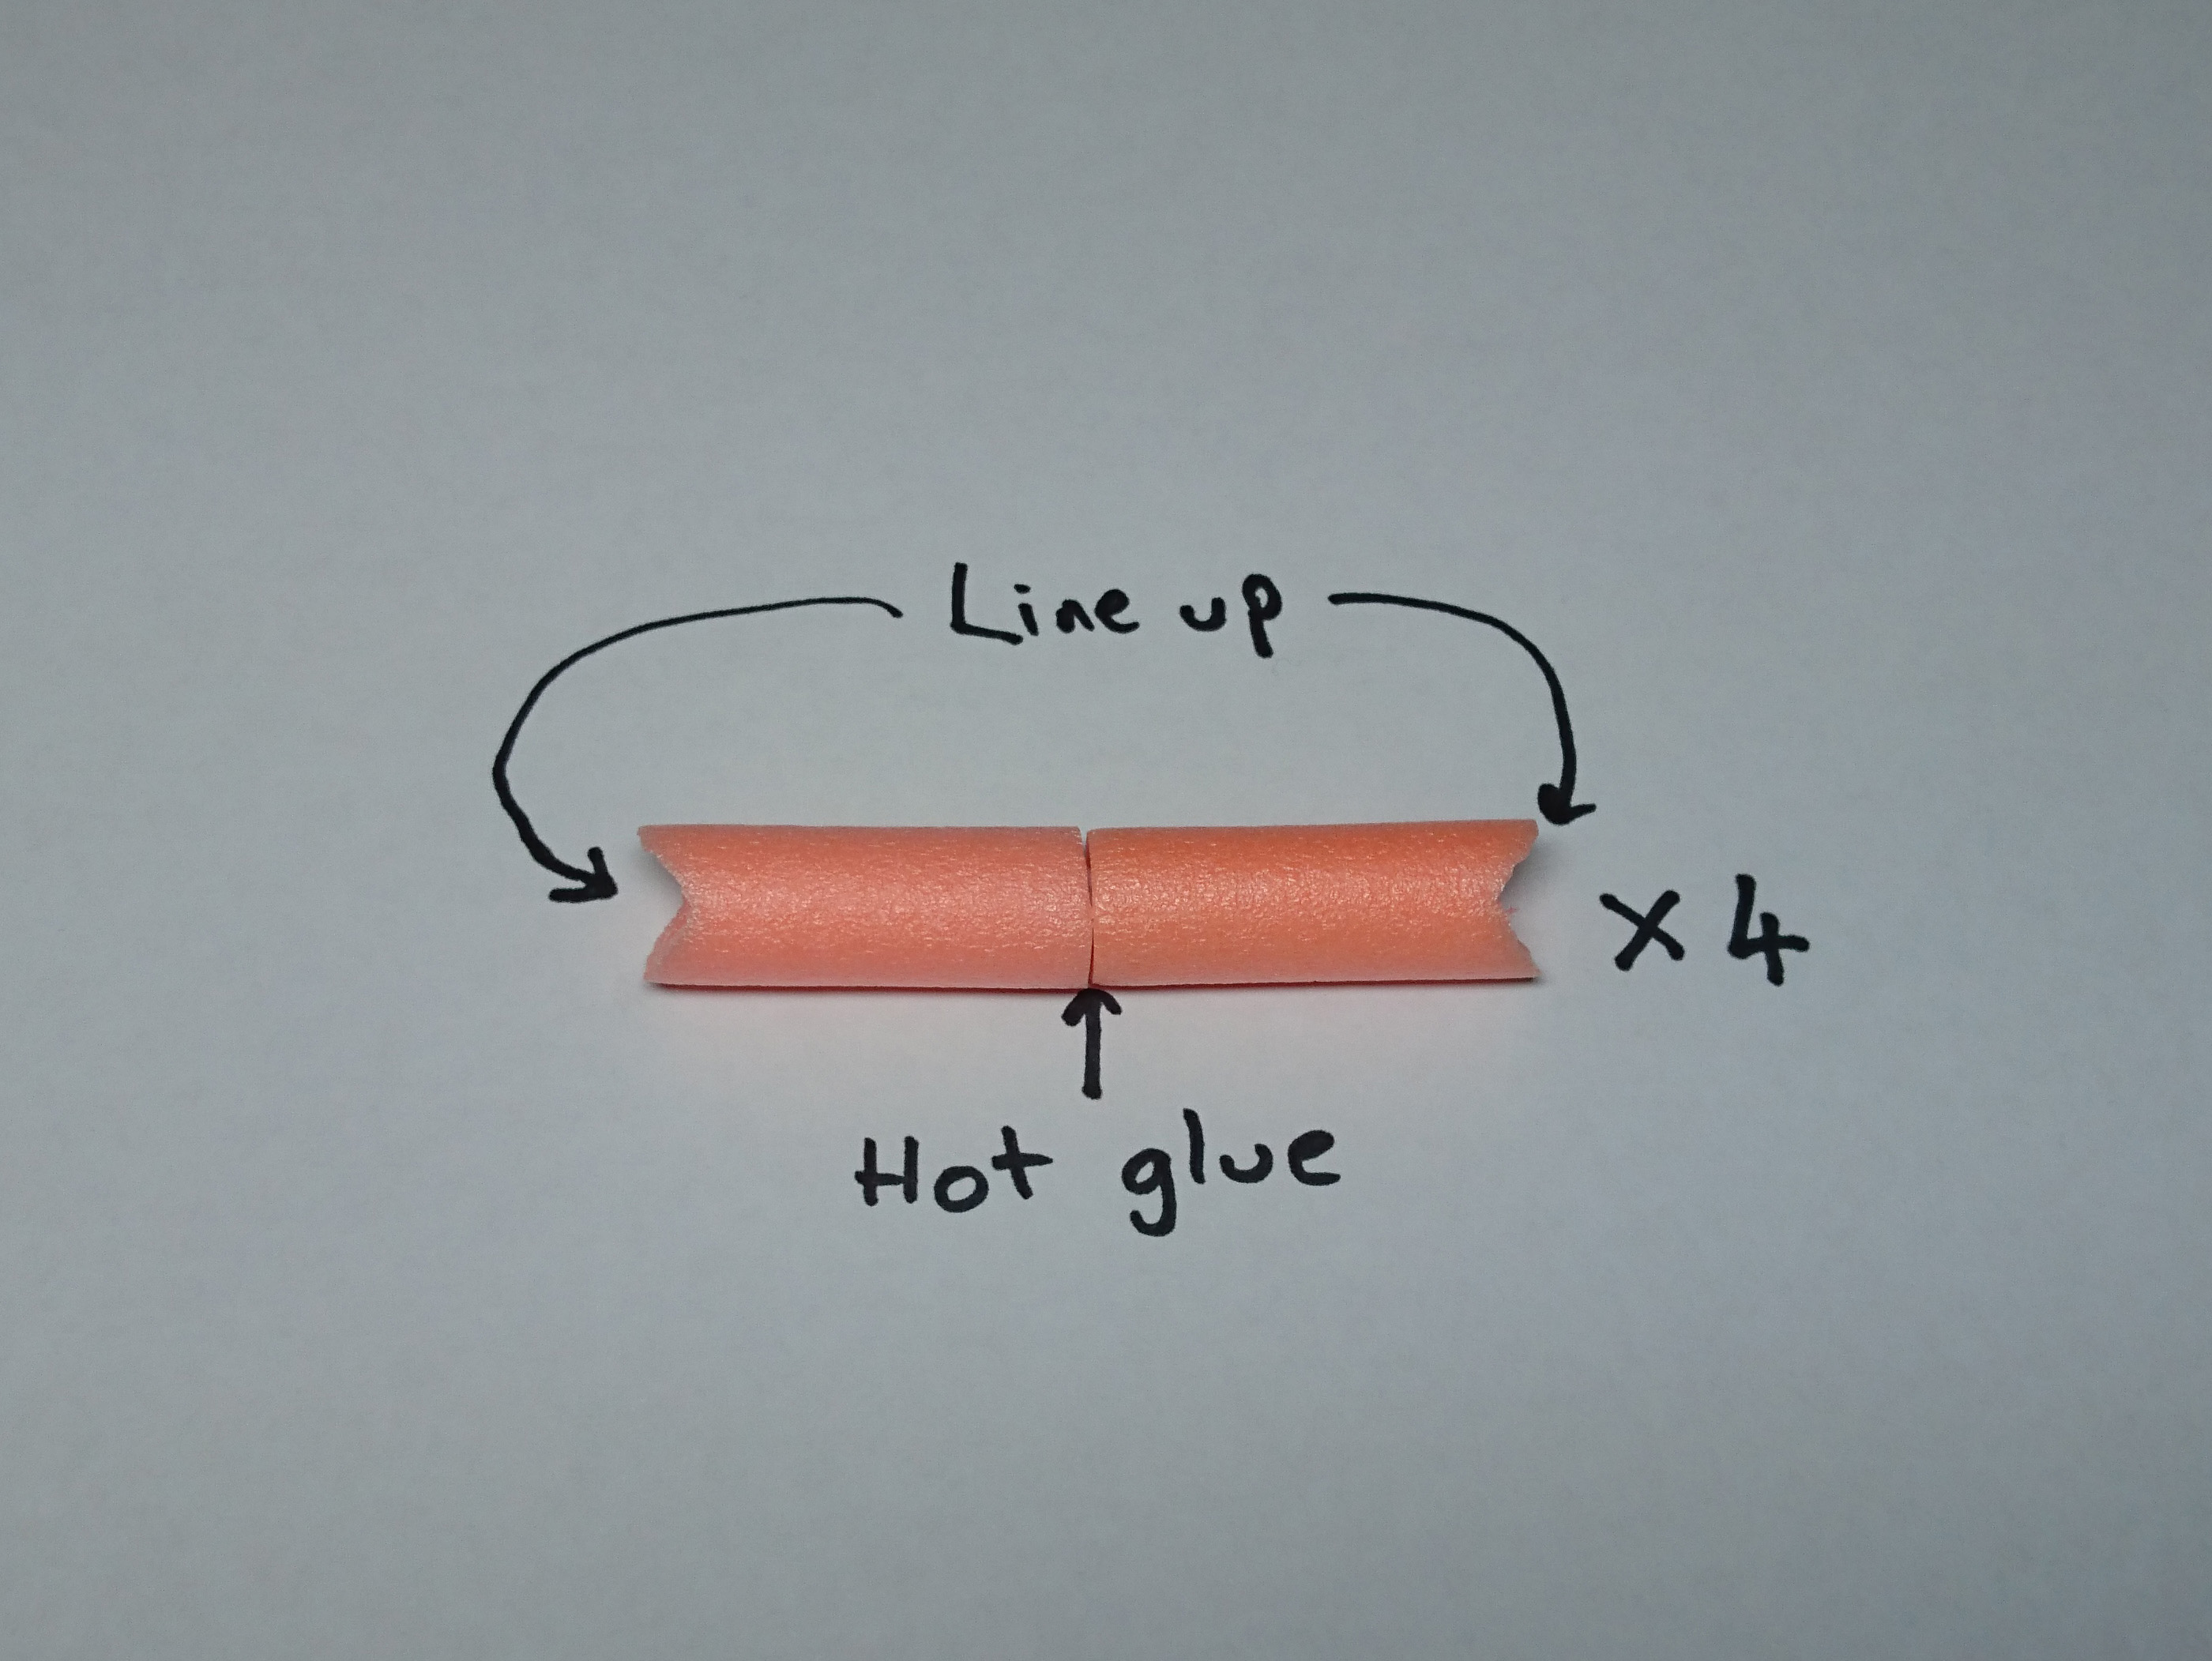 Line up
x 4
Hot glue